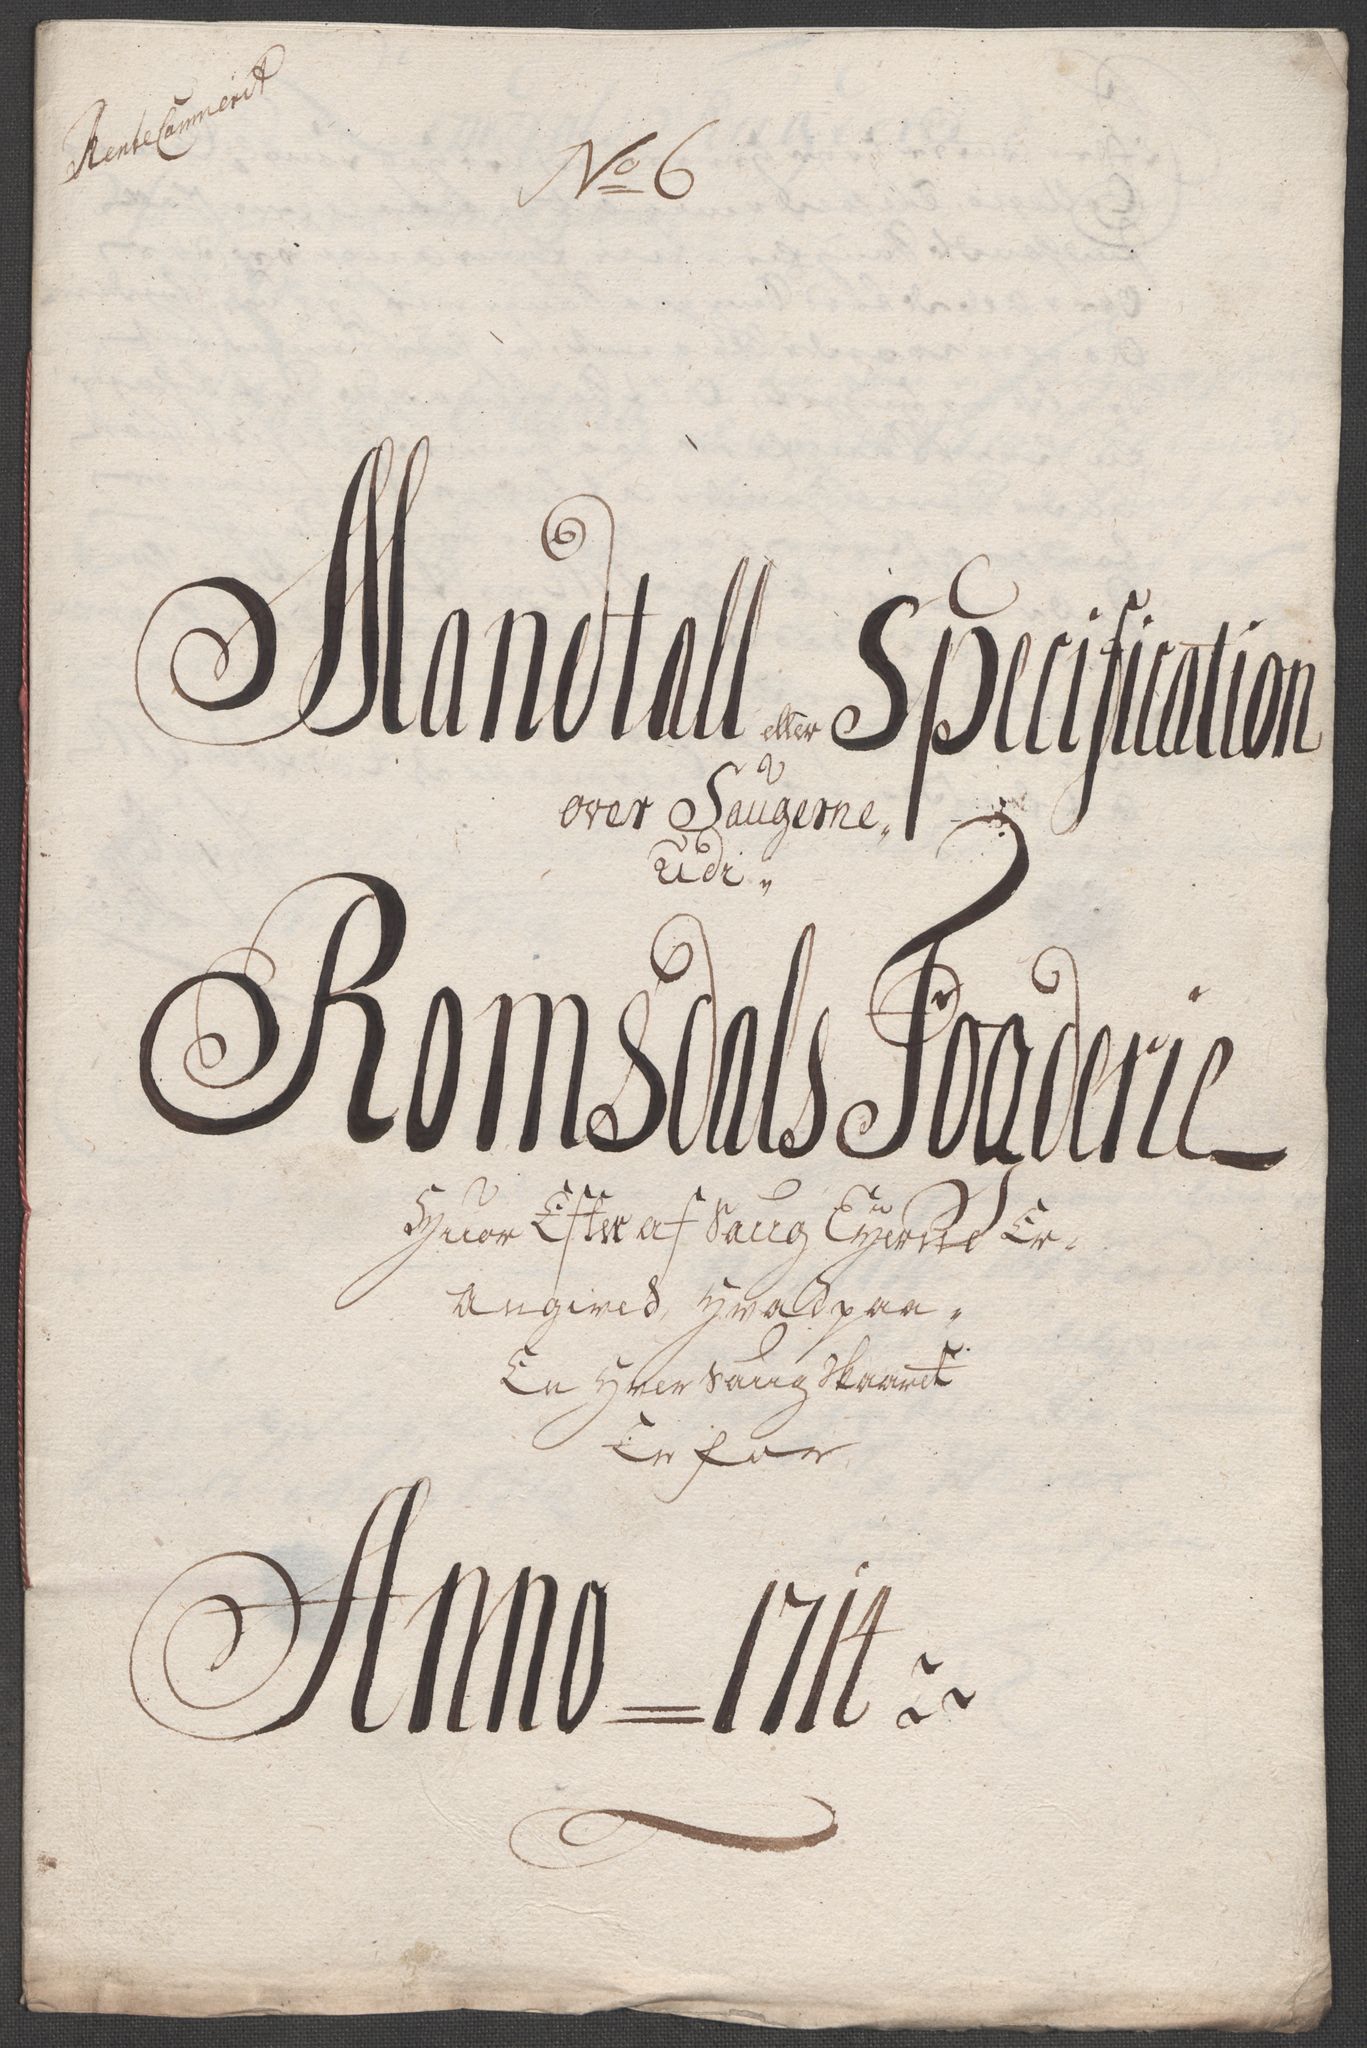 RenteCammerit
No 6
Mandtall eller Specification
over Saugerne„
Udi„
Romsdals Fogderie
Hvor Efter af Saug Eyerne Er„
Angived, Hvad paa„
En Hver Saug Skaaret
Er for
Anno = 1714